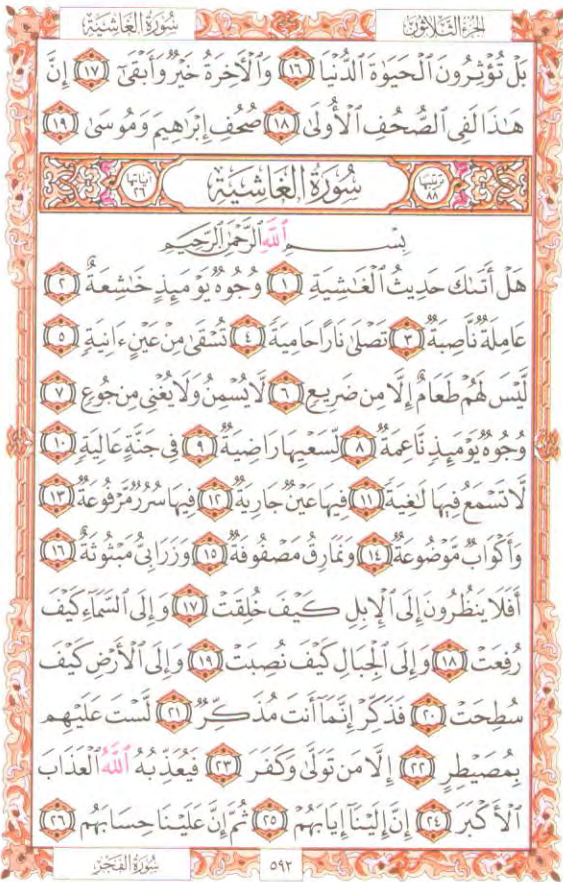 سُورَةُ الغَاشِيَةِ
الجُزءُ الثَّلَاثُونَ
بَلْ تُؤْثِرُونَ ٱلْحَيَوٰةَ ٱلدُّنْيَا ١٦ وَٱلْأَخِرَةُ خَيْرٌ وَأَبْقَىٰٓ ١٧ إِنَّ
هَٰذَا لَفِى ٱلصُّحُفِ ٱلْأُولَىٰ ١٨ صُحُفِ إِبْرَٰهِيمَ وَمُوسَىٰ ١٩
ترتيبها ٨٨ سُورَةُ الغَاشِيَةِ آياتها ٢٦
بِسْمِ ٱللَّهِ ٱلرَّحْمَٰنِ ٱلرَّحِيمِ
هَلْ أَتَىٰكَ حَدِيثُ ٱلْغَٰشِيَةِ ١ وُجُوهٌ يَوْمَئِذٍ خَٰشِعَةٌ ٢
عَامِلَةٌ نَّاصِبَةٌ ٣ تَصْلَىٰ نَارًا حَامِيَةً ٤ تُسْقَىٰ مِنْ عَيْنٍ ءَانِيَةٍ ٥
لَّيْسَ لَهُمْ طَعَامٌ إِلَّا مِن ضَرِيعٍ ٦ لَّا يُسْمِنُ وَلَا يُغْنِى مِن جُوعٍ ٧
وُجُوهٌ يَوْمَئِذٍ نَّاعِمَةٌ ٨ لِّسَعْيِهَا رَاضِيَةٌ ٩ فِى جَنَّةٍ عَالِيَةٍ ١٠
لَّا تَسْمَعُ فِيهَا لَٰغِيَةً ١١ فِيهَا عَيْنٌ جَارِيَةٌ ١٢ فِيهَا سُرُرٌ مَّرْفُوعَةٌ ١٣
وَأَكْوَابٌ مَّوْضُوعَةٌ ١٤ وَنَمَارِقُ مَصْفُوفَةٌ ١٥ وَزَرَابِىُّ مَبْثُوثَةٌ ١٦
أَفَلَا يَنظُرُونَ إِلَى ٱلْإِبِلِ كَيْفَ خُلِقَتْ ١٧ وَإِلَى ٱلسَّمَآءِ كَيْفَ
رُفِعَتْ ١٨ وَإِلَى ٱلْجِبَالِ كَيْفَ نُصِبَتْ ١٩ وَإِلَى ٱلْأَرْضِ كَيْفَ
سُطِحَتْ ٢٠ فَذَكِّرْ إِنَّمَآ أَنتَ مُذَكِّرٌ ٢١ لَّسْتَ عَلَيْهِم
بِمُصَيْطِرٍ ٢٢ إِلَّا مَن تَوَلَّىٰ وَكَفَرَ ٢٣ فَيُعَذِّبُهُ ٱللَّهُ ٱلْعَذَابَ
ٱلْأَكْبَرَ ٢٤ إِنَّ إِلَيْنَآ إِيَابَهُمْ ٢٥ ثُمَّ إِنَّ عَلَيْنَا حِسَابَهُم ٢٦
٥٩٢
سُورَةُ الفَجْرِ